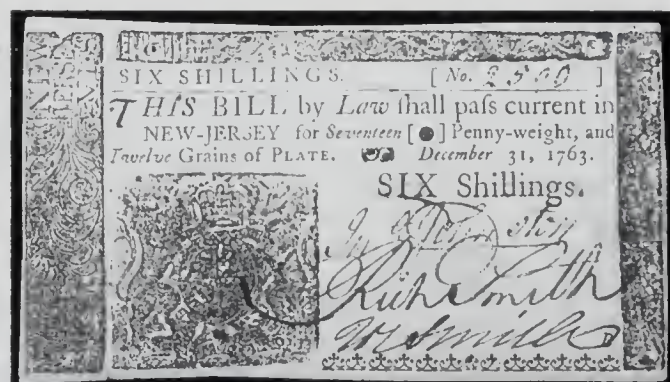 NEW
SIX SHILLINGS. [ No. 2500 ]
THIS BILL by Law ſhall paſs current in
NEW-JERSEY for Seventeen [ ] Penny-weight, and
Twelve Grains of PLATE. December 31, 1763.
SIX Shillings.
Rich Smith
Smith